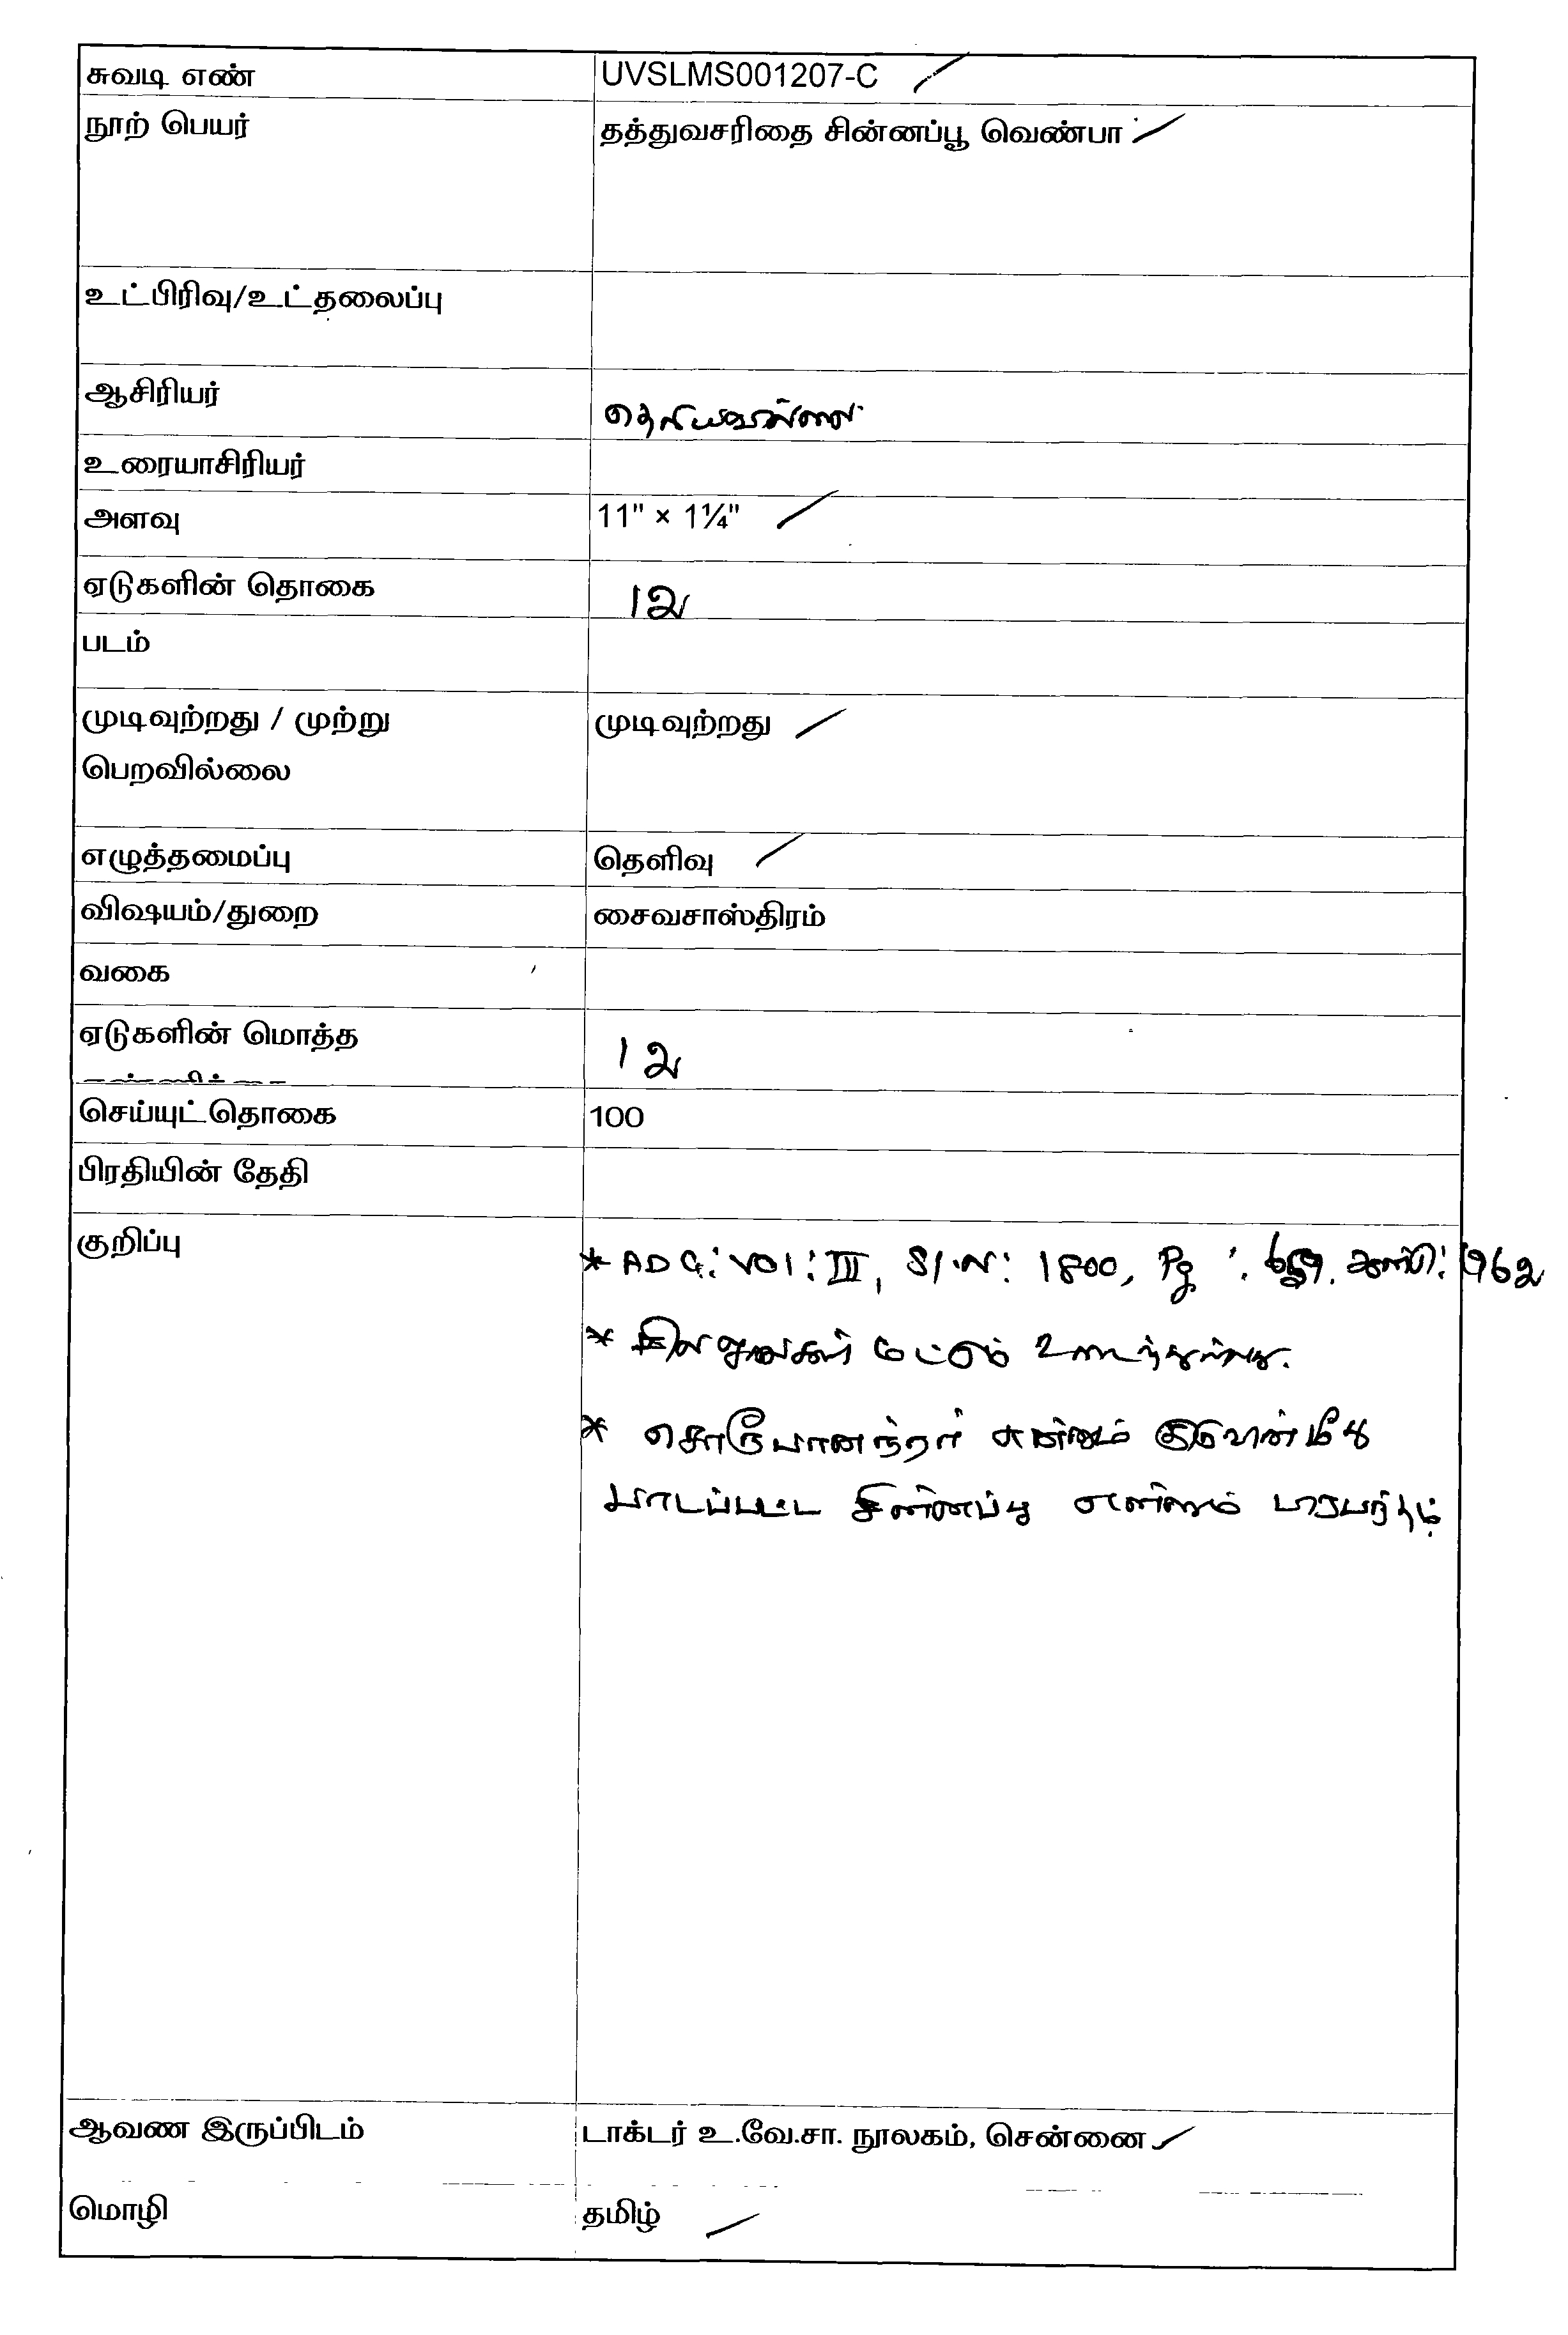 சுவடி எண் UVSLMS001207-C
நூற் பெயர் தத்துவசரிதை சின்னப்பூ வெண்பா
உட்பிரிவு/உட்தலைப்பு
ஆசிரியர்
உரையாசிரியர்
அளவு 11" × 1¼"
ஏடுகளின் தொகை 12
படம்
முடிவுற்றது / முற்று முடிவுற்றது
பெறவில்லை
எழுத்தமைப்பு தெளிவு
விஷயம்/துறை சைவசாஸ்திரம்
வகை
ஏடுகளின் மொத்த 12
செய்யுட்தொகை 100
பிரதியின் தேதி
குறிப்பு * ADC: Vol: III, Sl.N: 1800, Pg : 1962
* சில மட்டும் உடைந்துள்ளது.
* சொரூபானந்தர் என்னும் குருவின் மீது
பாடப்பட்ட சின்னப்பூ என்னும் பிரபந்தம்
ஆவண இருப்பிடம் டாக்டர் உ.வே.சா. நூலகம், சென்னை
மொழி தமிழ்